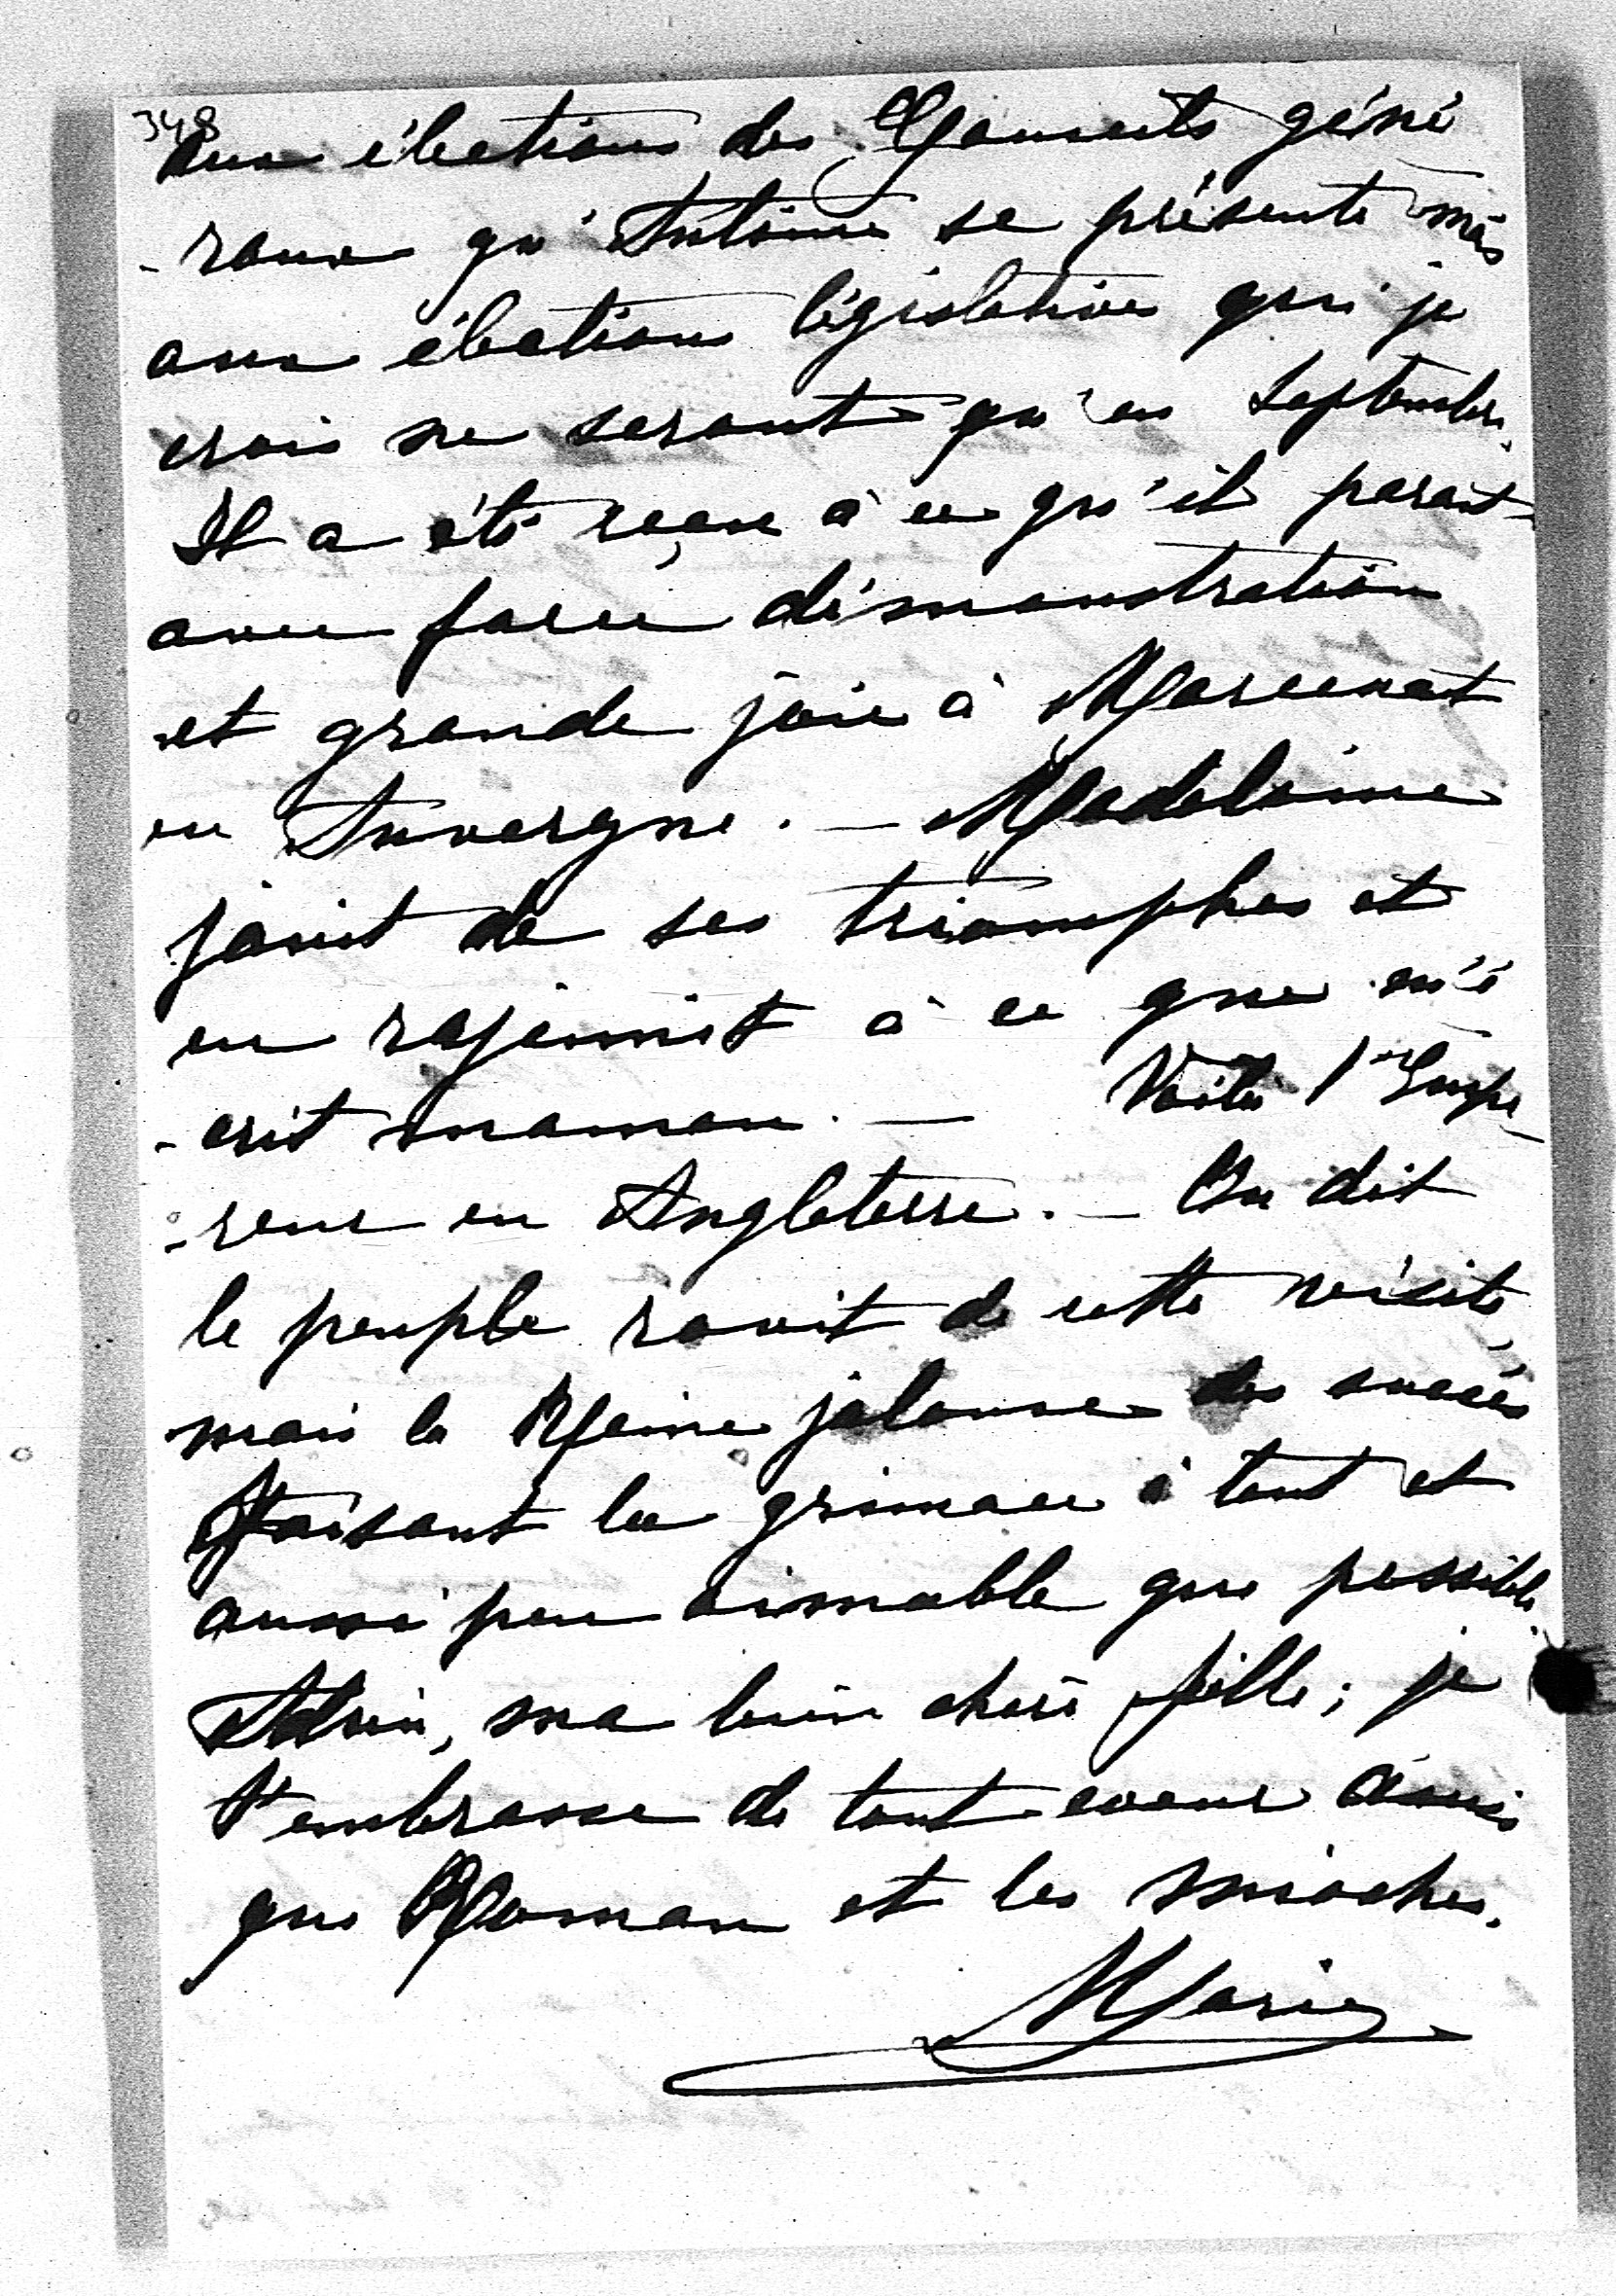 348
aux élections des Conseils géné
-raux qu'Antoine se présente mais
aux élections législatives qui je
crois ne seront qu'en Septembre.
Il a été reçu à ce qu'il parait
avec force démonstration
et grande joie à Marcenat
en Auvergne. — Madeleine
jouit de ses triomphes et
en rajeunit à ce que m'é
-crit maman. — Voilà l'Empe
-reur en Angleterre. — On dit
le peuple ravit de cette visite,
mais la Reine jalouse des succès
faisant la grimace à tout et
aussi peu aimable que possible.
Adieu, ma bien chère fille; je
t'embrasse de tout coeur ainsi
que Roman et les mioches.
Marie